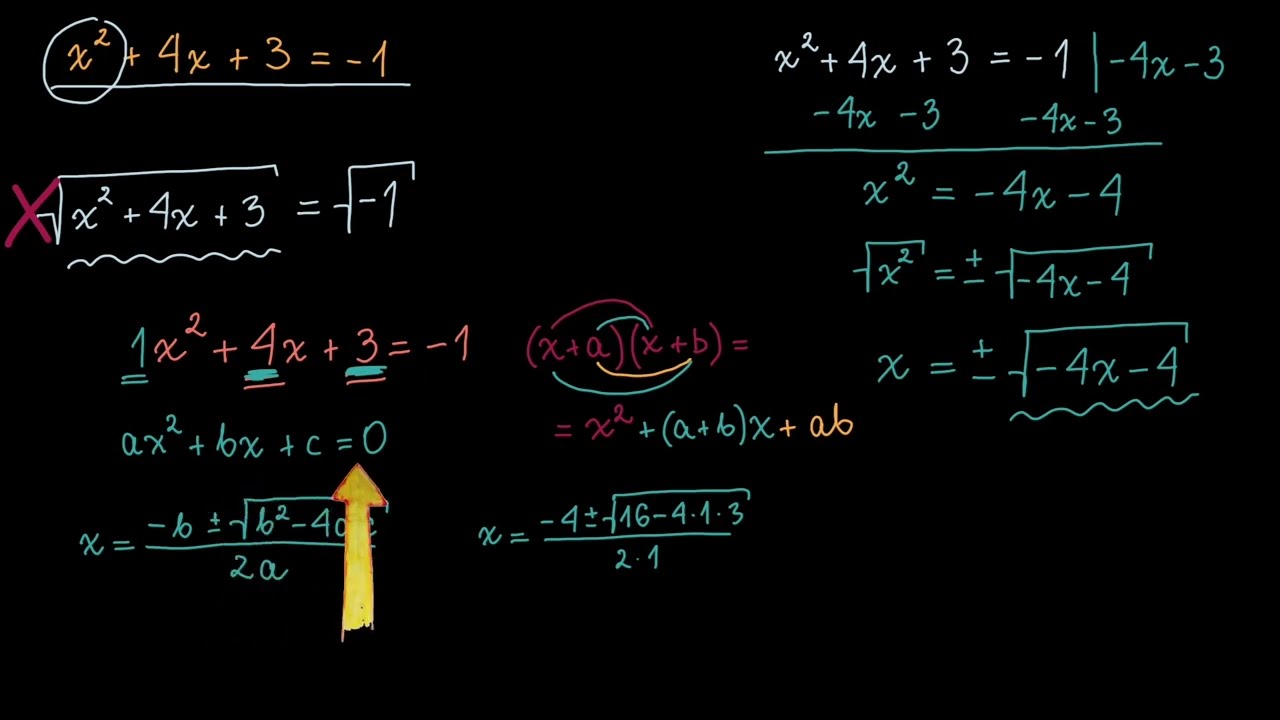 x² + 4x + 3 = -1
√(x² + 4x + 3) = √-1
1x² + 4x + 3 = -1
ax² + bx + c = 0
x = (-b ± √(b² - 4ac)) / 2a
(x+a)(x+b) =
= x² + (a+b)x + ab
x = (-4 ± √(16 - 4·1·3)) / 2·1
x² + 4x + 3 = -1 | -4x - 3
-4x - 3 -4x - 3
x² = -4x - 4
√x² = ± √(-4x - 4)
x = ± √(-4x - 4)